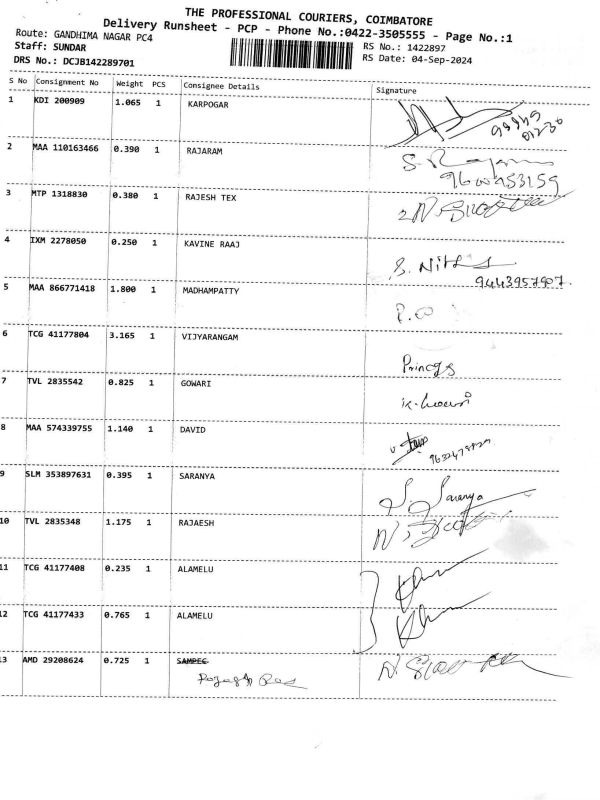 THE PROFESSIONAL COURIERS, COIMBATORE
Delivery Runsheet - PCP - Phone No.:0422-3505555 - Page No.:1
Route: GANDHIMA NAGAR PC4
RS No.: 1422897
Staff: SUNDAR
RS Date: 04-Sep-2024
DRS No.: DCJB142289701
S No Consignment No Weight PCS Consignee Details Signature
1 KDI 200909 1.065 1 KARPOGAR
2 MAA 110163466 0.390 1 RAJARAM
3 MTP 1318830 0.380 1 RAJESH TEX
4 IXM 2278050 0.250 1 KAVINE RAAJ
9443957907.
5 MAA 866771418 1.800 1 MADHAMPATTY
6 TCG 41177804 3.165 1 VIJYARANGAM
7 TVL 2835542 0.825 1 GOWARI
8 MAA 574339755 1.140 1 DAVID
9 SLM 353897631 0.395 1 SARANYA S. Saranya
10 TVL 2835348 1.175 1 RAJAESH
11 TCG 41177408 0.235 1 ALAMELU
12 TCG 41177433 0.765 1 ALAMELU
13 AMD 29208624 0.725 1 SAMPEC